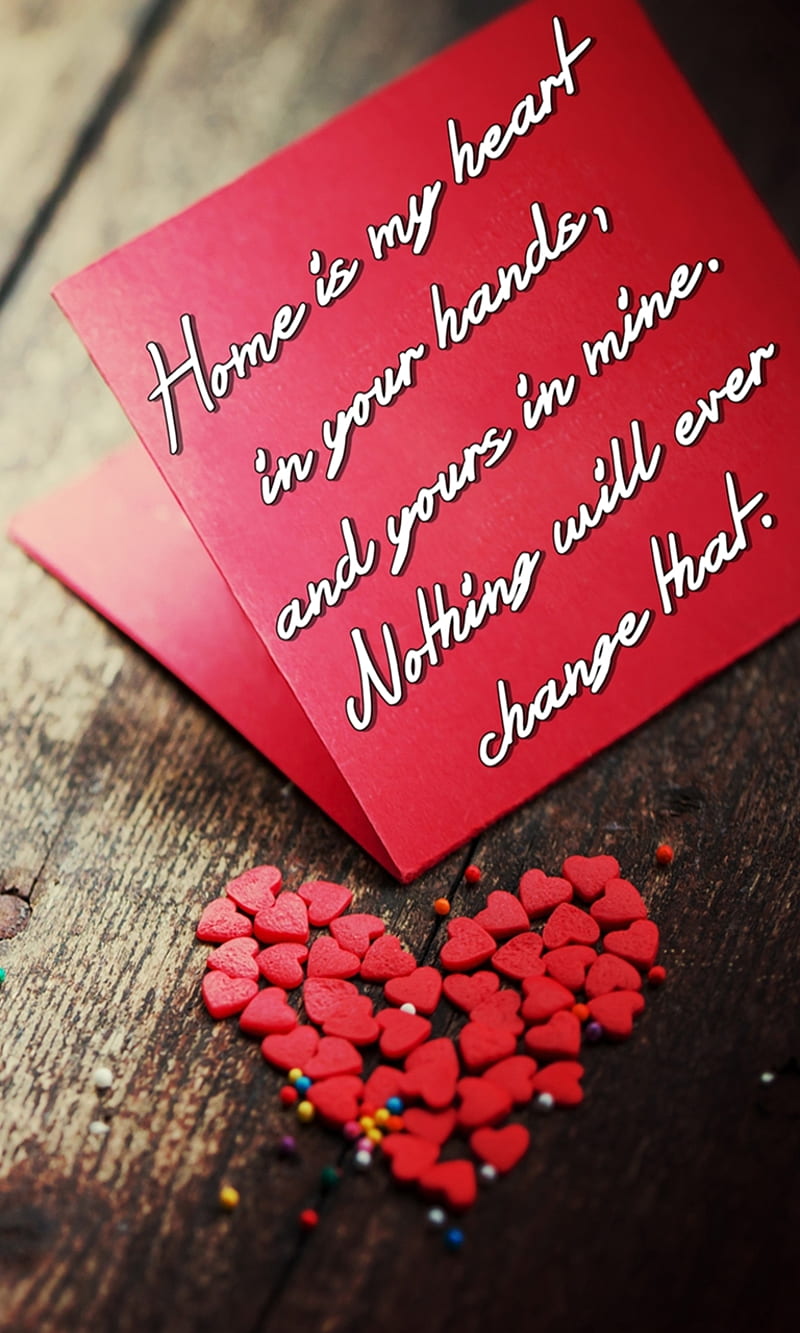 Home is my heart
in your hands,
and yours in mine.
Nothing will ever
change that.